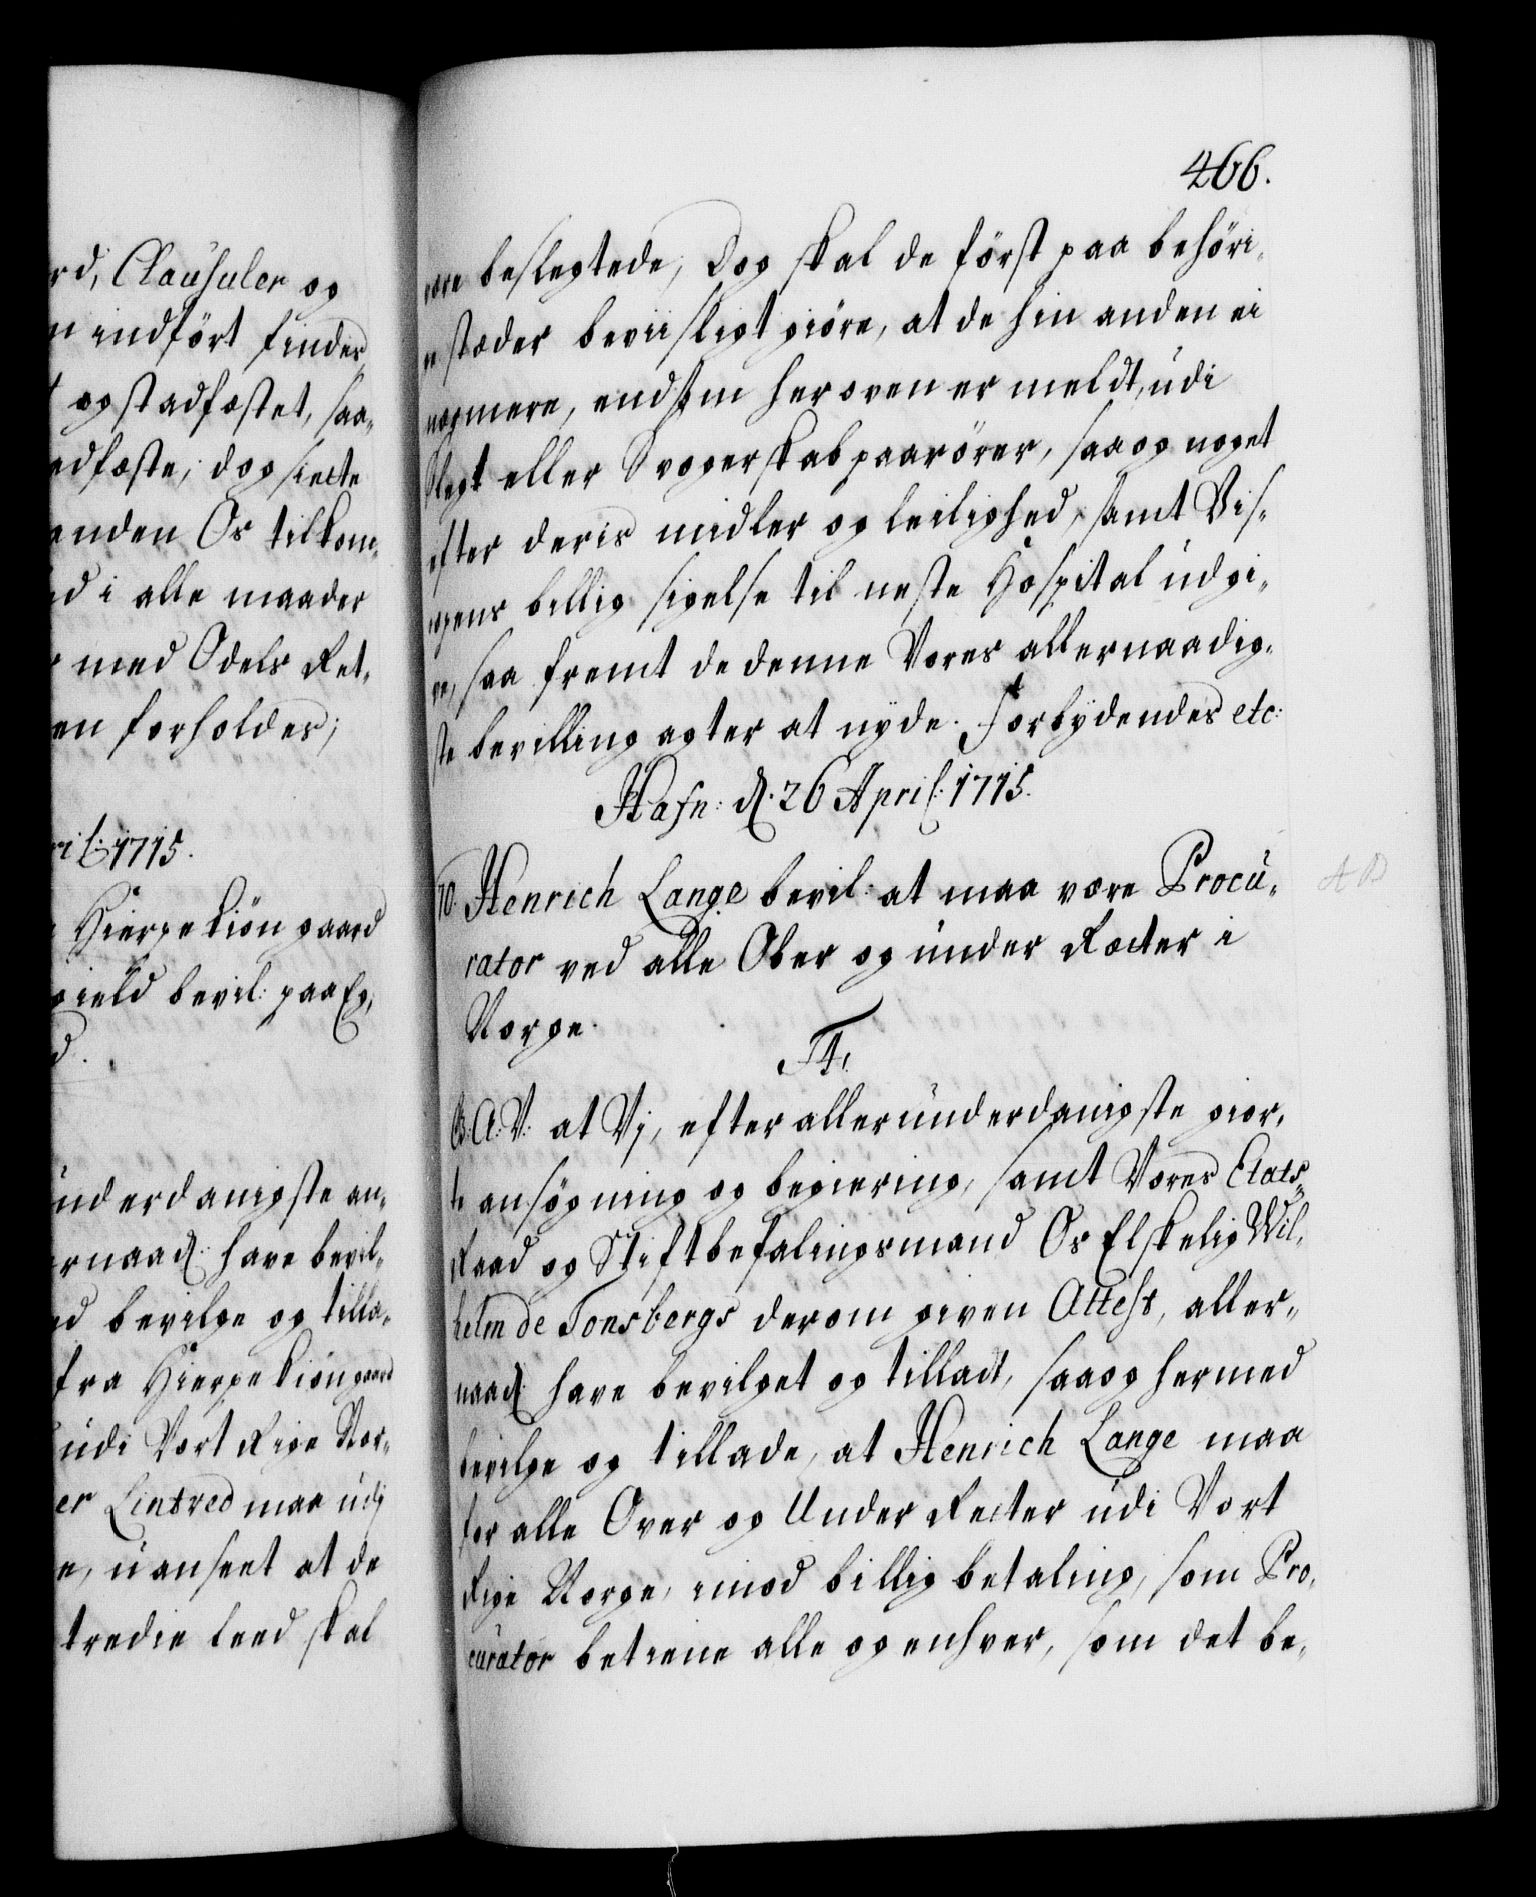 rd, Clausuler og
n indført finder,
t og stadfæstet, saa,,
adfæste, dog siette
anden Os tilkom,,
ed i alle maader
r med Odels Ret,,
en forholdes;
ril: 1715.
Hierpekiøn gaard
gield bevil: paa Eg,
d.
underdanigste an,,
ernaad: have bevil,,
ed bevilge og tilla,,
fra Hierpekiøngaard
udi Vort Rige Nor,,
er Lintved maa udj
e, uanseet at de
tredie leed skal
466.
være beslegtede, Dog skal de først paa behøri,,
e stæder beviisligt giøre, at de hin anden ei
nogmere, end som heroven er meldt, udi
Slegt eller Svogerskab paarører, saa og noget
efter deris midler og leilighed, samt Vis,,
ogens billig sigelse til neste Hospital udgi,,
ve, saa fremt de denne Vores allernaadig,,
ste bevilling agter at nyde. Forbydendes etc:
Hafn: d. 26 April: 1715.
70. Henrich Lange bevil: at maa være Procu,,
rator ved alle Ober og under Retter i
Norge.
F4.
G: A: V: at Vj, efter allerunderdanigste gior,,
te ansøgning og begiering, samt Vores Etats,,
Raad og Stiftbefalingsmand Os Elskelig Wil,,
helm de Tonsbergs derom given Attest, aller,,
naad: have bevilget og tilladt, saa og hermed
bevilge og tillade, at Henrich Lange maa
for alle Over og Under Retter udi Vort
Rige Norge, imod billig betaling, som Pro,,
curator betiene alle og enhver, som det be,,